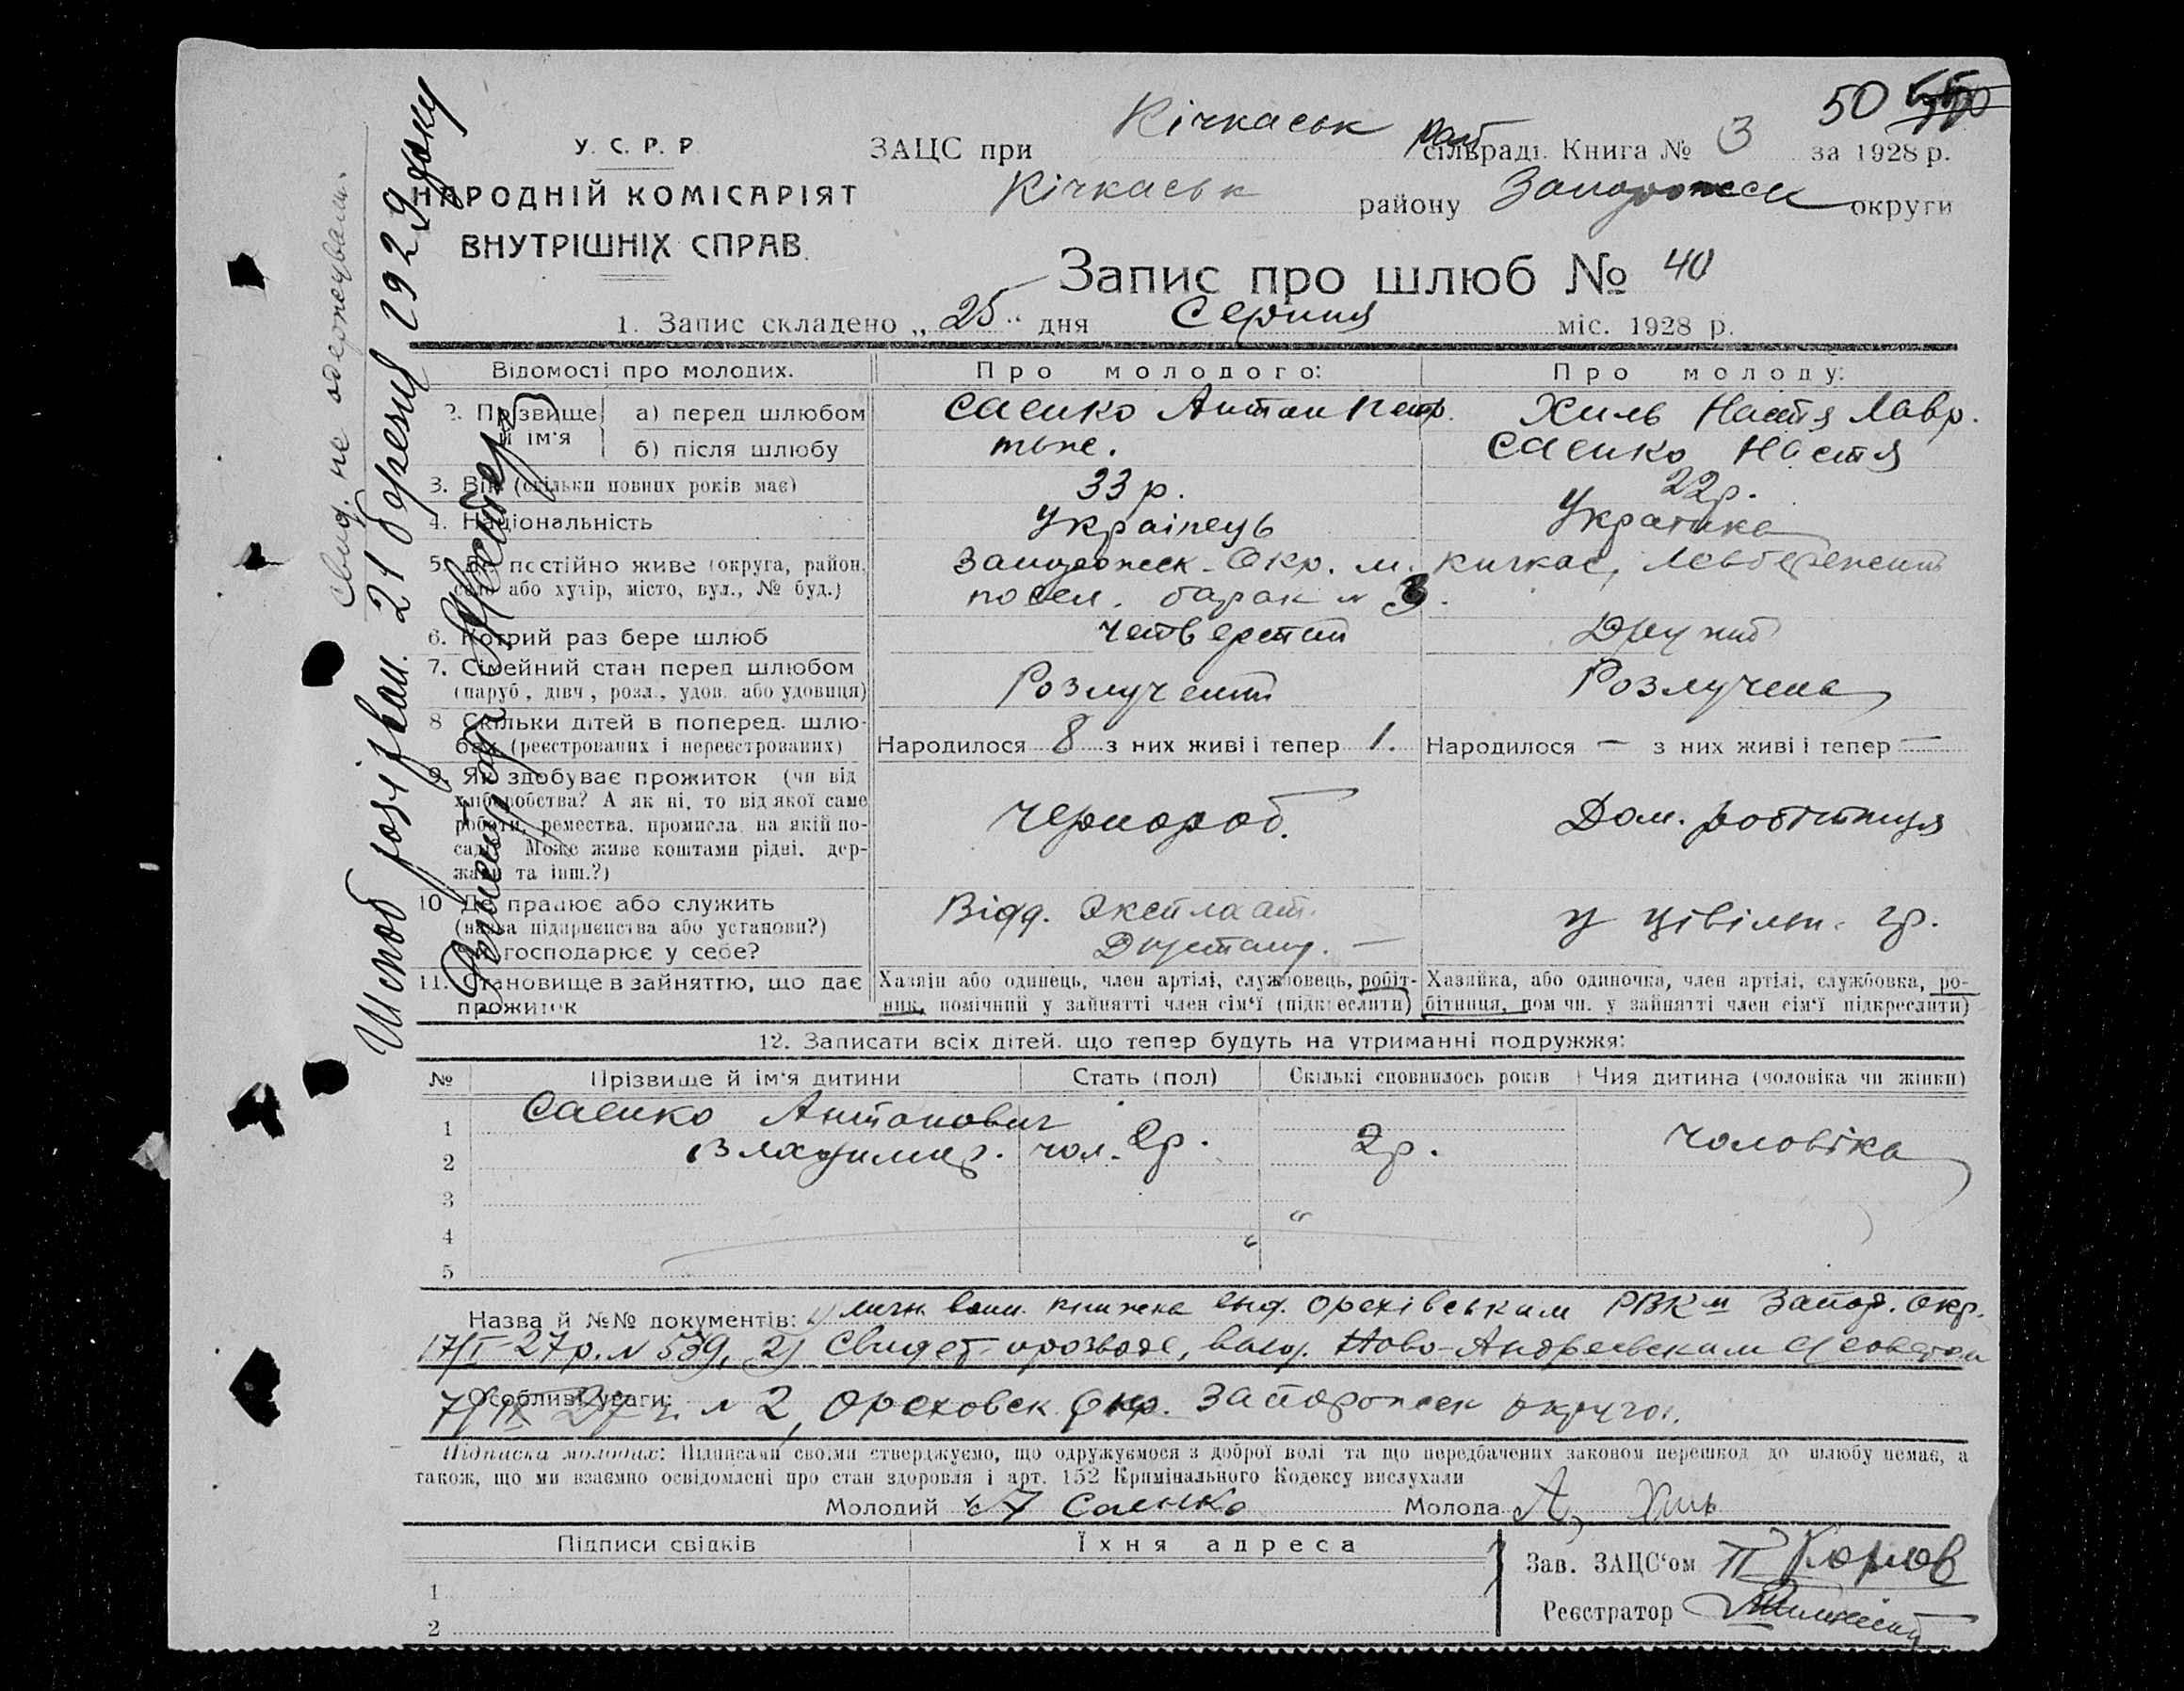 50
У. С. Р. Р.
НАРОДНІЙ КОМІСАРІЯТ
ВНУТРІШНІХ СПРАВ.
ЗАЦС при Кічкаськ рай сільраді. Книга № 3 за 1928 р.
Кічкаськ району Запорожск округи
Запис про шлюб № 40
1. Запис складено „25“ дня Серпня міс. 1928 р.
Відомості про молодих. Про молодого: Про молоду:
2. Прізвище й ім'я а) перед шлюбом Саенко Антон Петр. Хиль Настя Лавр.
б) після шлюбу теже. Саенко Настя
3. Вік (скільки повних років має) 33 р. 22 р.
4. Національність Україпець Украінка
5. Де постійно живе (округа, район, Запорожск. Окр. м. Кичкас, Левобережний
село або хутір, місто, вул., № буд.) посел. барак № 3.
6. Котрий раз бере шлюб Четвертий Другий
7. Сімейний стан перед шлюбом
(паруб., дівч., розл., удов. або удовиця) Розлучений Розлучена
8 Скільки дітей в поперед. шлю-
бах (реєстрованих і нереєстрованих) Народилося 8 з них живі і тепер 1. Народилося — з них живі і тепер —
9. Як здобуває прожиток (чи від
хліборобства? А як ні, то від якої саме
роботи, ремества, промисла, на якій по-
саді? Може живе коштами рідні, дер-
жави та інш.?) Чернороб. Дом. робітниця
10 Де працює або служить
(назва підприємства або установи?)
Чи господарює у себе? Відд. Эксплоат. у цівільн. гр.
11. Становище в зайняттю, що дає
прожиток
Хазяін або одинець, член артілі, службовець, робіт-
ник, помічний у зайнятті член сім'ї (підкреслити)
Хазяйка, або одиночка, член артілі, службовка, ро-
бітниця, помічн. у зайнятті член сім'ї підкреслити)
12. Записати всіх дітей, що тепер будуть на утриманні подружжя:
№ Прізвище й ім'я дитини Стать (пол) Скількі сповнилось років Чия дитина (чоловіка чи жінки)
1 Саенко Антонович
2 Владимир. чол. 2р. 2р. чоловіка
3
4
5
Назва й №№ документів: 1) личн. воин. книжка вид. Орехівським РВК Запор. Окр.
17/I-27р. № 539, 2) Свидет. о розводе, выд. Ново-Андреевским с/советом
Особливі уваги:
7/IX 27 г. № 2, Ореховск. Запорожск округи.
Підписка молодих: Підписами своїми стверджуємо, що одружуємося з доброї волі та що передбачених законом перешкод до шлюбу немає, а
також, що ми взаємно освідомлені про стан здоровля і арт. 152 Кримінального Кодексу вислухали
Молодий А Саенко Молода А, Хиль
Підписи свідків Їхня адреса
Зав. ЗАЦС'ом
Реєстратор
1
2
Свид. не одержували.
Шлюб розірван. 21 березня 1929 року